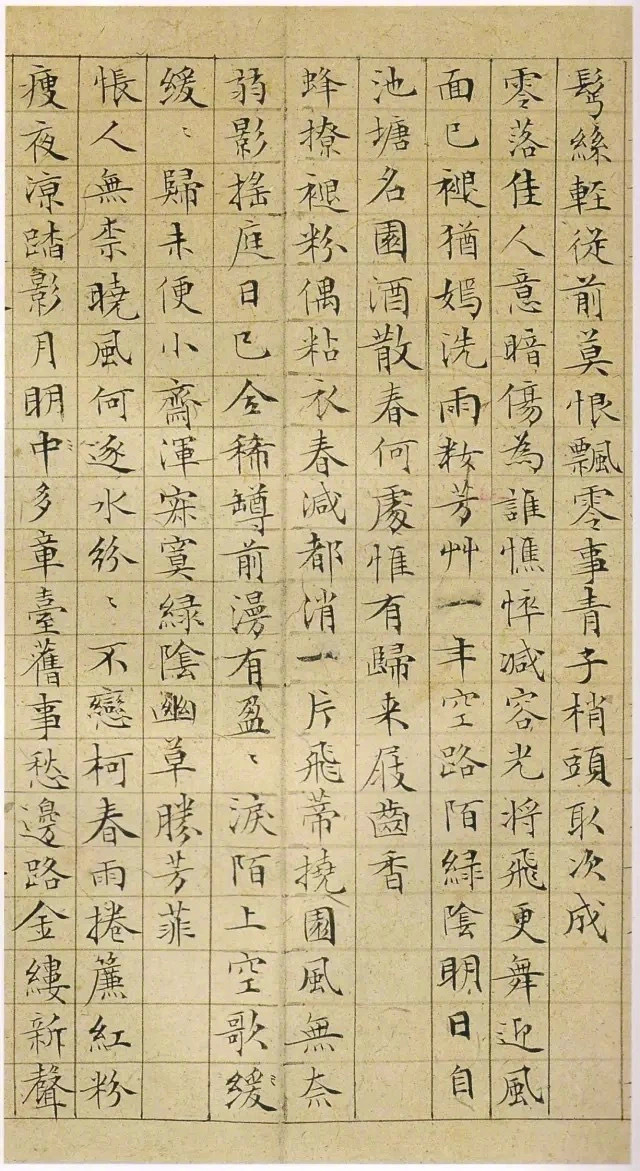 鬂絲輕從前莫恨飄零事青子梢頭取次成
零落佳人意暗傷為誰憔悴減容光將飛更舞迎風
面已褪猶嫣洗雨粧芳艸一年空路陌綠陰明日自
池塘名園酒散春何處惟有歸来屐齒香
蜂撩褪粉偶粘衣春減都消一片飛蒂撓園風無奈
弱影搖庭日已全稀罇前漫有盈〻淚陌上空歌緩
緩〻歸未便小齋渾寂寞綠陰幽草勝芳菲
悵人無柰曉風何逐水紛〻不戀柯春雨捲簾紅粉
瘦夜凉踏影月明中多章臺舊事愁邊路金縷新聲